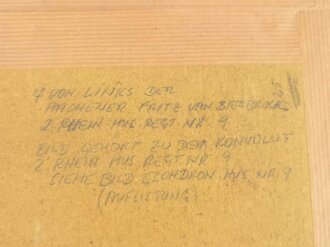 7 VON LINKS DER
AACHENER FRITZ VAN
2. RHEIN HUS. REGT. NR. 9
BILD GEHÖRT ZU DEM KONVOLUT
2 RHEIN HUS. REGT. NR. 9
SIEHE BILD HUS. NR 9
(AUFLISTUNG)